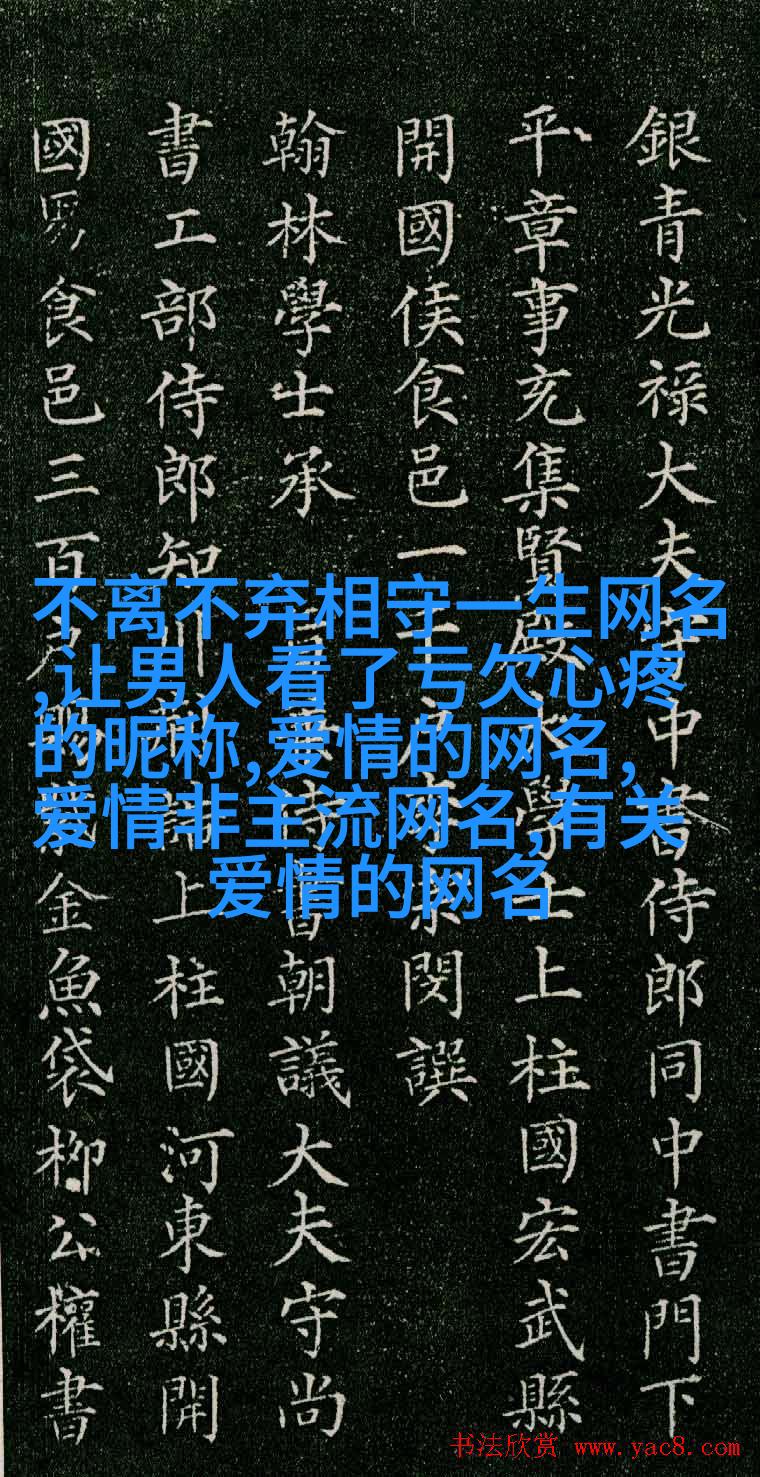 銀青光禄大夫中書侍郎同中書門下
平章事充集賢殿學士上柱國宏武縣
開國侯食邑一千户閔譔
翰林學士承侍書朝議大夫守尚
書工部侍郎知上柱國河東縣開
國男食邑三百户賜金魚袋柳公權書
不离不弃相守一生网名
,让男人看了亏欠心疼
的昵称,爱情的网名,
爱情非主流网名,有关
爱情的网名
书法欣赏 www.yac8.com